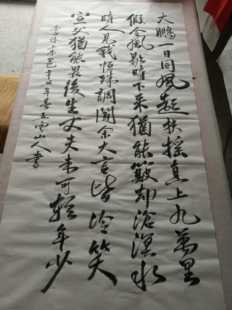 大鵬一日同風起扶摇直上九萬里
假令風歇時下來猶能簸却滄溟水
時人見我恒殊調聞余大言皆冷笑
宣父猶能畏後生丈夫未可輕年少
山人書